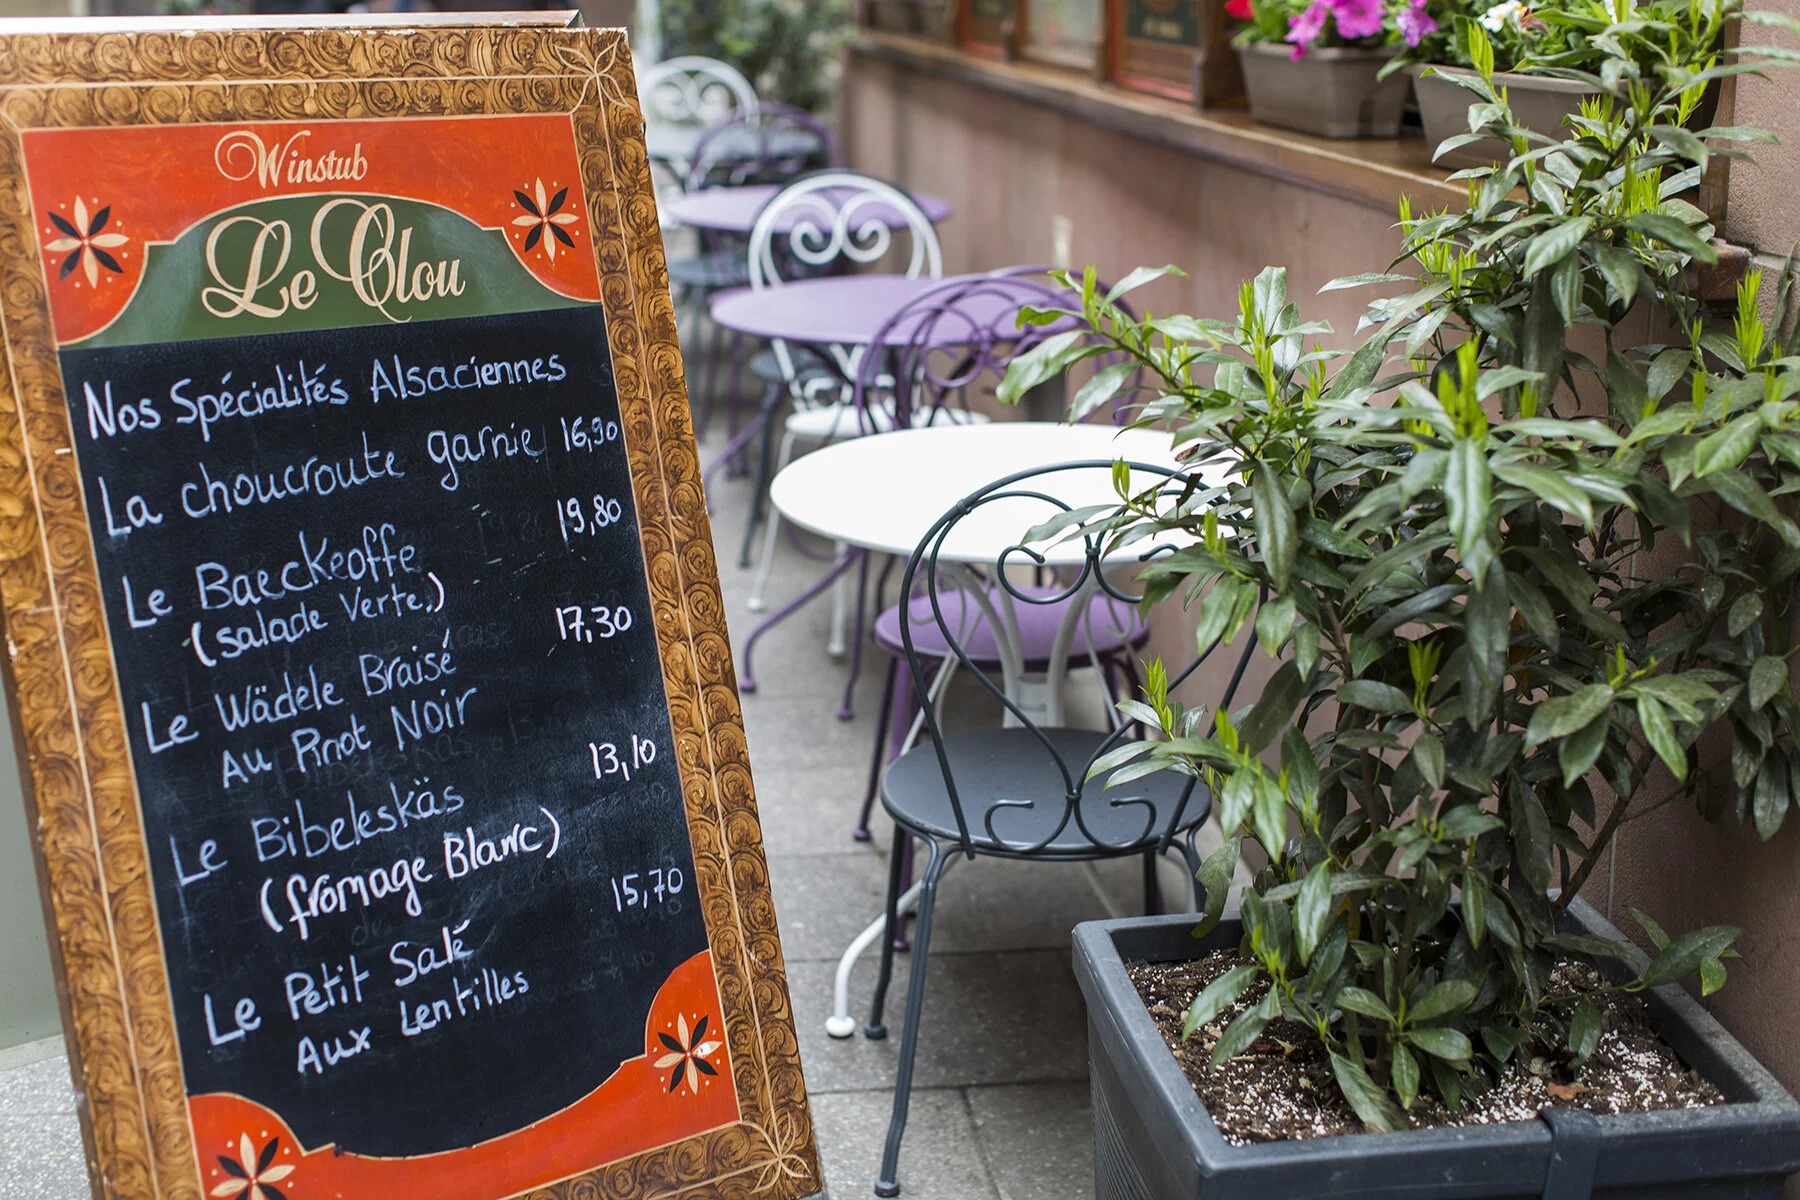 Winstub
Le Clou
Nos Spécialités Alsaciennes
La choucroute garnie 16,90
Le Baeckeoffe 19,80
(salade Verte.)
Le Wädele Braisé 17,30
Au Pinot Noir
Le Bibeleskäs 13,10
(fromage Blanc)
Le Petit Salé 15,70
Aux Lentilles